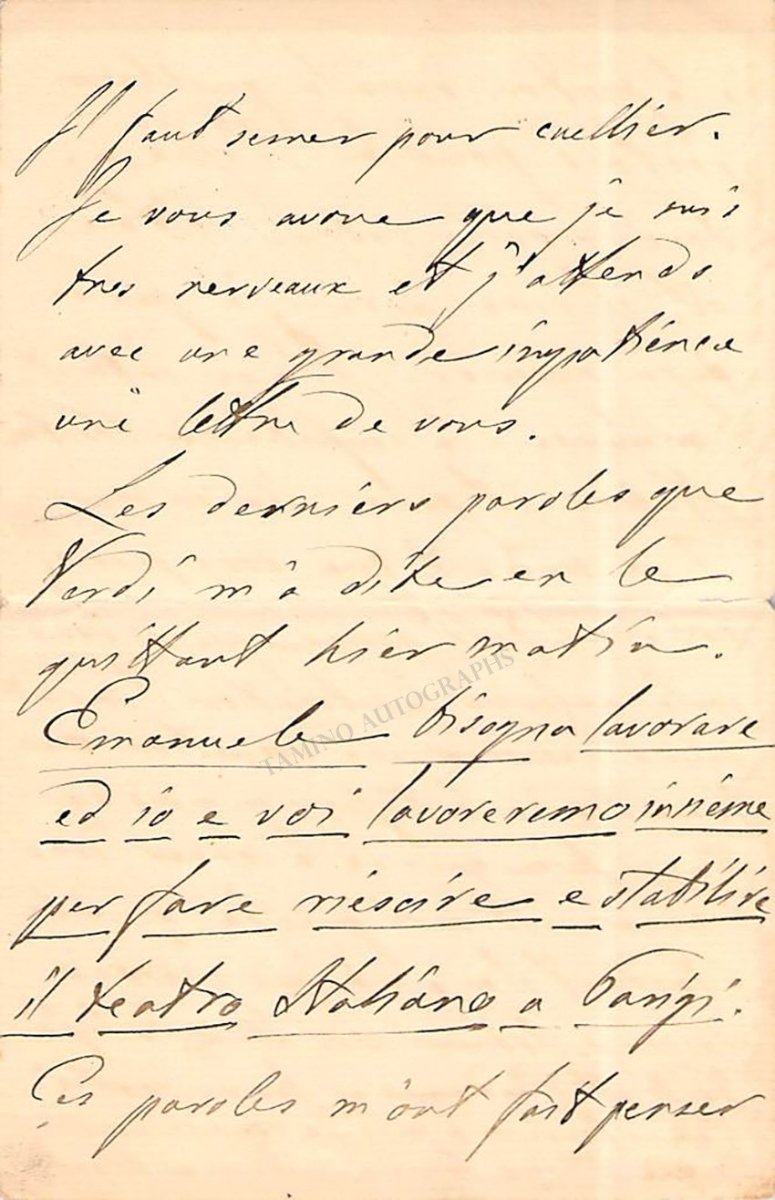 Il faut semer pour cuellier.
Je vous avoue que je suis
tres nerveaux et j'attends
avec une grande impatience
une lettre de vous.
Les derniers paroles que
Verdi m'a dite en le
quittant hier matin.
Emanuele bisogna lavorare
ed io e voi lavoreremo insieme
per fare riescire e stabilire
il teatro Italiano a Parigi.
Ces paroles m'ont fait penser
TAMINO AUTOGRAPHS